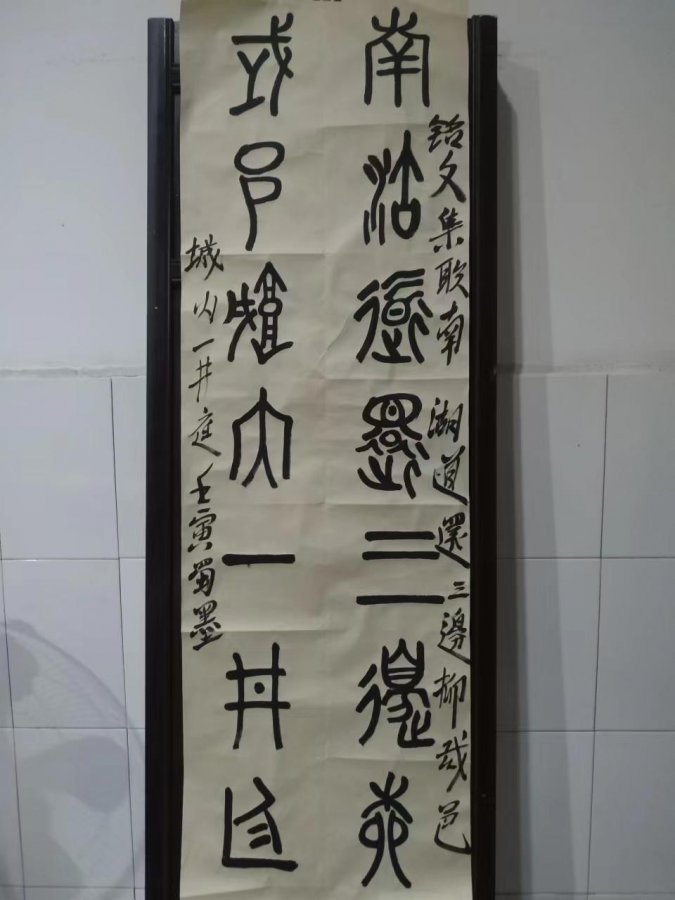 铭文集联南湖道還三邊柳或邑
南湖道還三邊柳
或邑城内一井庭
城内一井庭壬寅蜀墨